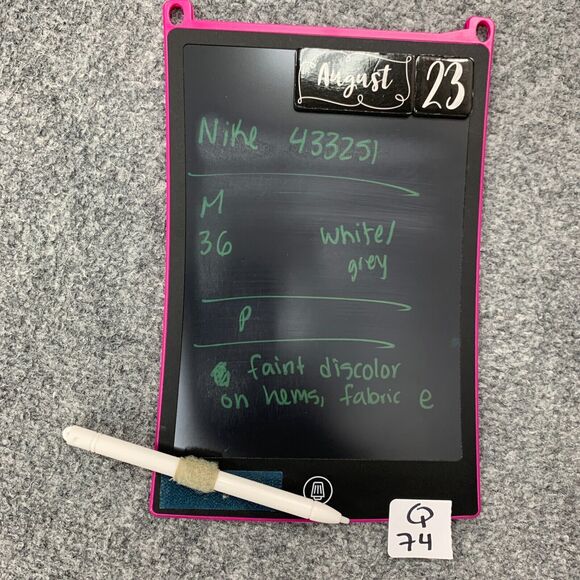 August 23
Nike 433251
M
36 white/
grey
P
faint discolor
on hems, fabric e
Q
74